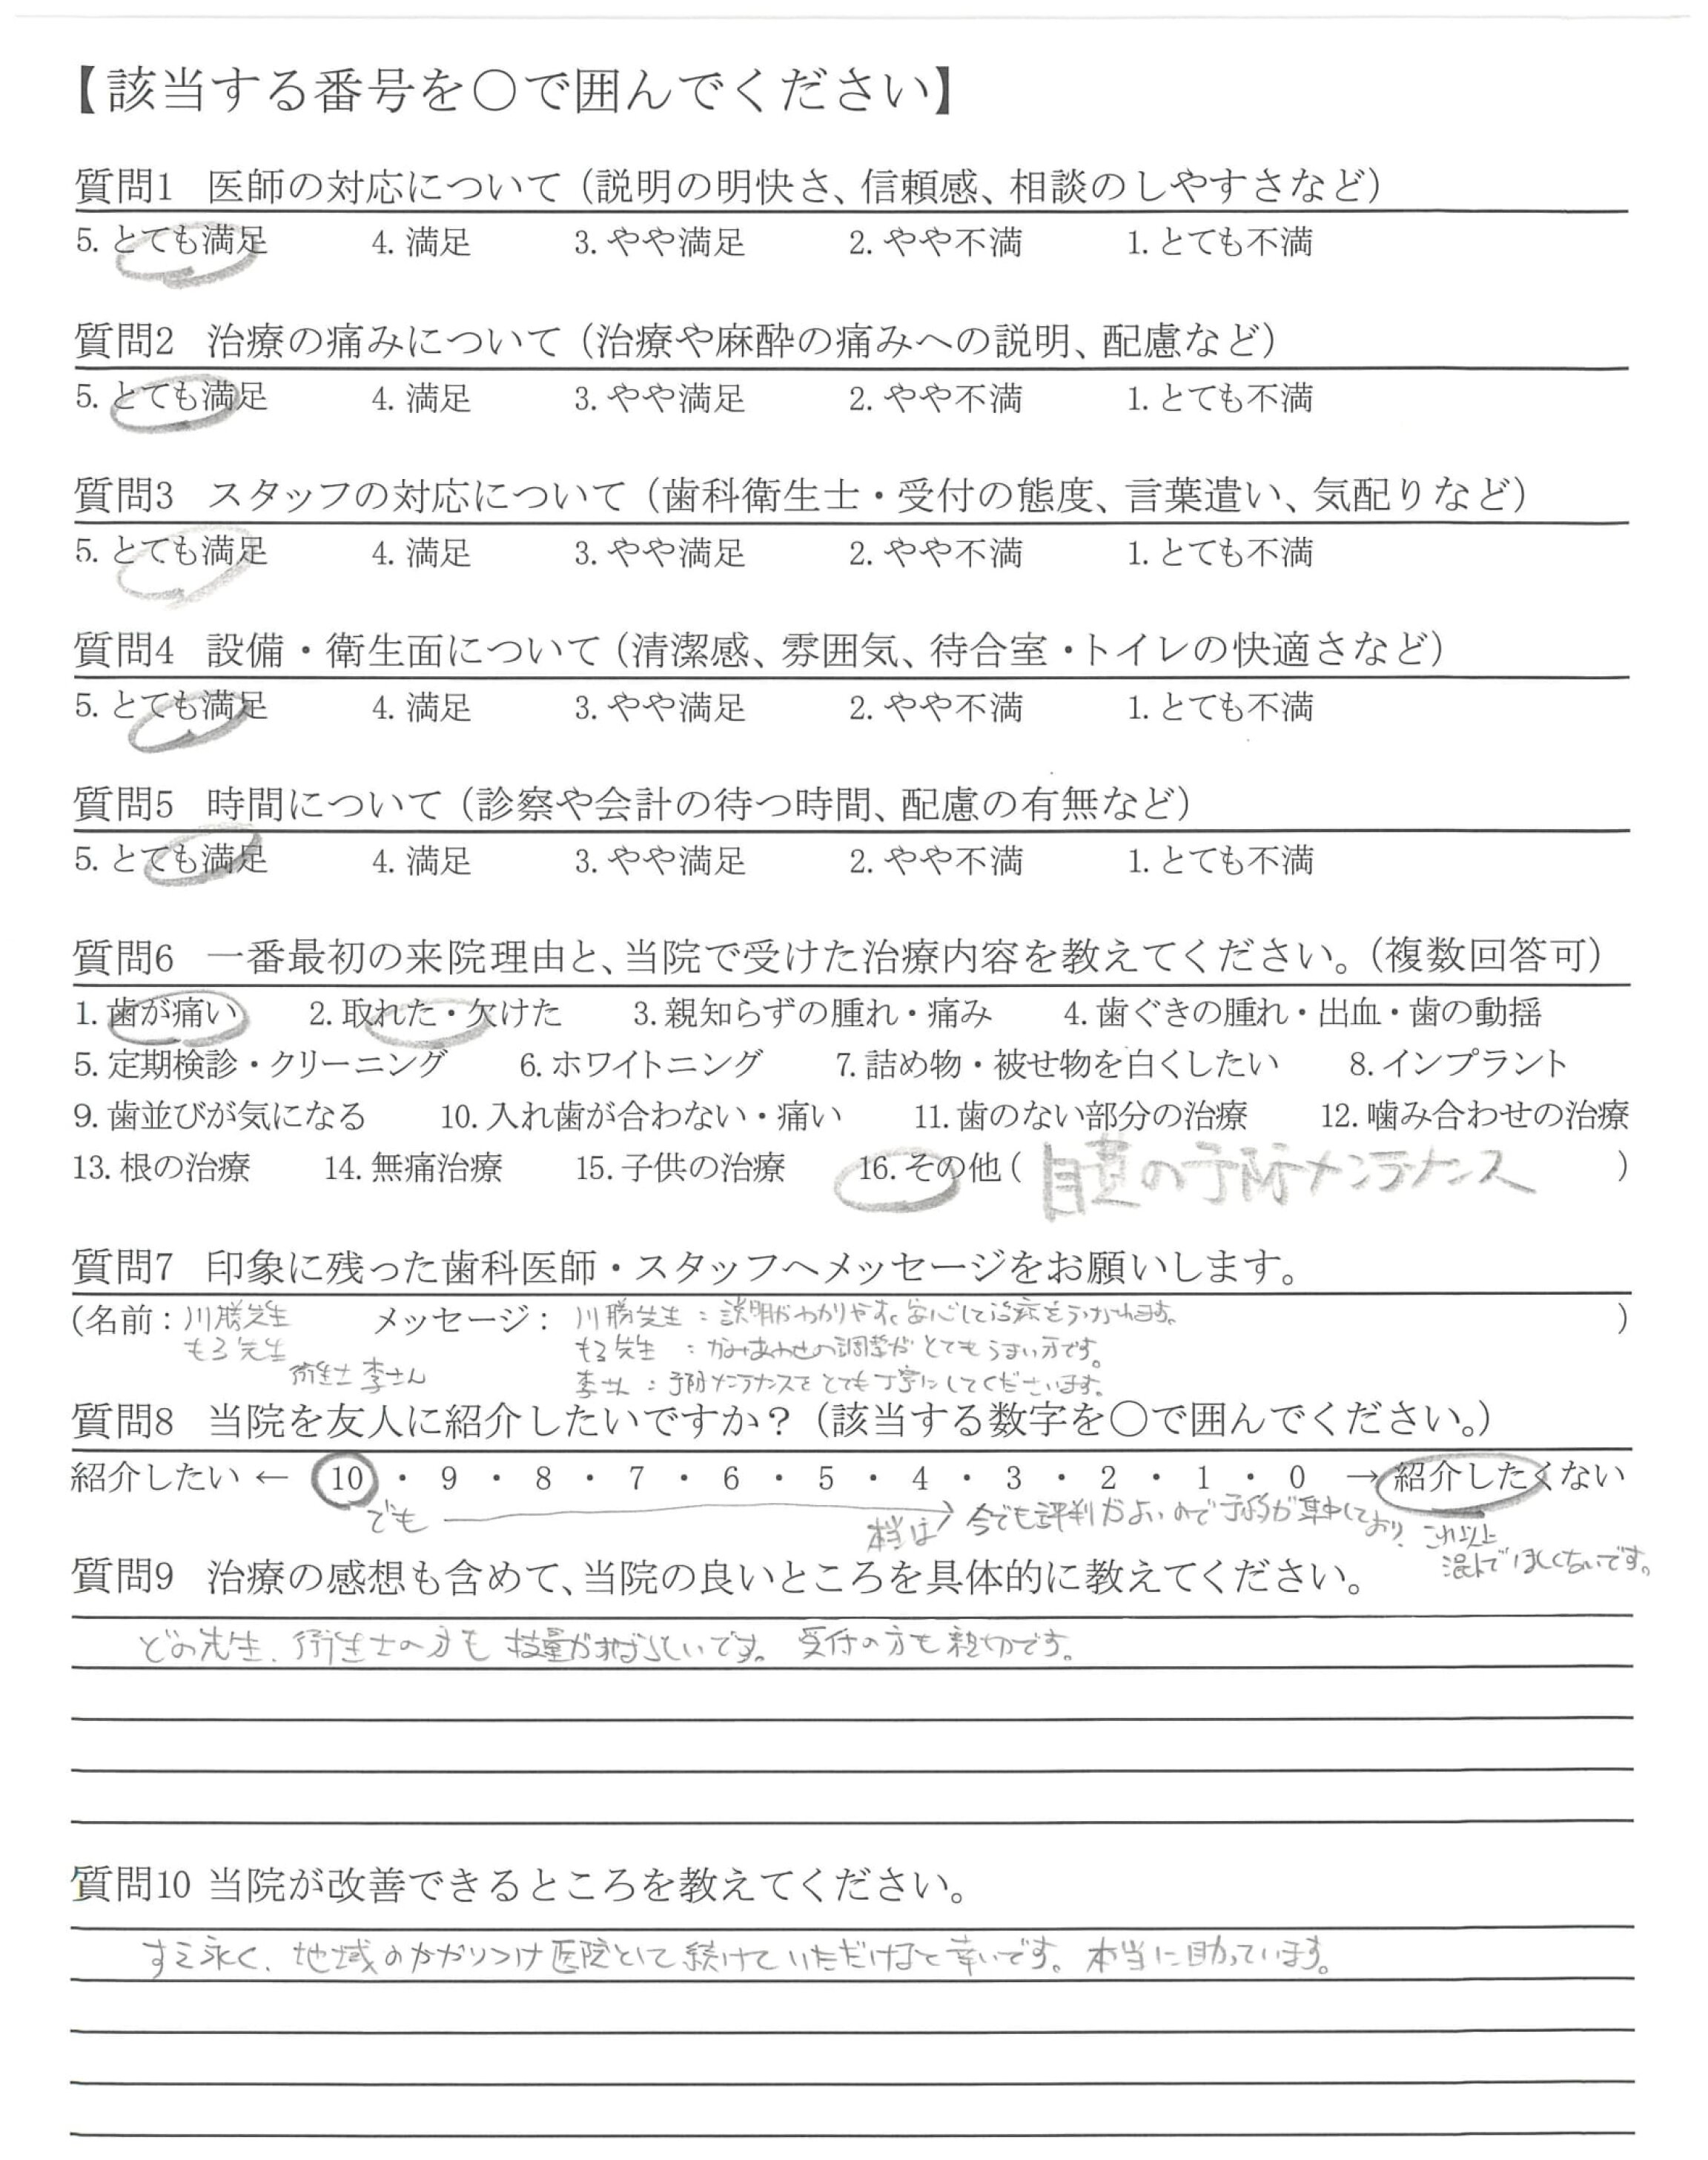 【該当する番号を○で囲んでください】
質問1 医師の対応について（説明の明快さ、信頼感、相談のしやすさなど）
5. とても満足 4. 満足 3. やや満足 2. やや不満 1. とても不満
質問2 治療の痛みについて（治療や麻酔の痛みへの説明、配慮など）
5. とても満足 4. 満足 3. やや満足 2. やや不満 1. とても不満
質問3 スタッフの対応について（歯科衛生士・受付の態度、言葉遣い、気配りなど）
5. とても満足 4. 満足 3. やや満足 2. やや不満 1. とても不満
質問4 設備・衛生面について（清潔感、雰囲気、待合室・トイレの快適さなど）
5. とても満足 4. 満足 3. やや満足 2. やや不満 1. とても不満
質問5 時間について（診察や会計の待つ時間、配慮の有無など）
5. とても満足 4. 満足 3. やや満足 2. やや不満 1. とても不満
質問6 一番最初の来院理由と、当院で受けた治療内容を教えてください。（複数回答可）
1. 歯が痛い 2. 取れた・欠けた 3. 親知らずの腫れ・痛み 4. 歯ぐきの腫れ・出血・歯の動揺
5. 定期検診・クリーニング 6. ホワイトニング 7. 詰め物・被せ物を白くしたい 8. インプラント
9. 歯並びが気になる 10. 入れ歯が合わない・痛い 11. 歯のない部分の治療 12. 噛み合わせの治療
13. 根の治療 14. 無痛治療 15. 子供の治療 16. その他（ の予防メンテナンス ）
質問7 印象に残った歯科医師・スタッフへメッセージをお願いします。
（名前：川勝先生 メッセージ：川勝先生：説明がわかりやすく安心して治療をうけられます。）
もろ先生 もろ先生：かみあわせの調整がとてもうまい方です。
衛生士 李さん 李さん：予防メンテナンスをとても丁寧にしてくださいます。
質問8 当院を友人に紹介したいですか？（該当する数字を○で囲んでください。）
紹介したい ← 10 ・ 9 ・ 8 ・ 7 ・ 6 ・ 5 ・ 4 ・ 3 ・ 2 ・ 1 ・ 0 → 紹介したくない
でも → 本当は 今でも評判がよいので予約が集中しており、これ以上
混んでほしくないです。
質問9 治療の感想も含めて、当院の良いところを具体的に教えてください。
どの先生、衛生士の方も技量がすばらしいです。受付の方も親切です。
質問10 当院が改善できるところを教えてください。
すえ永く、地域のかかりつけ医院として続けていただけると幸いです。本当に助っています。